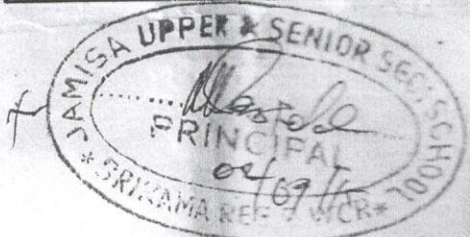 JAMISA UPPER & SENIOR SEC. SCHOOL
PRINCIPAL
* SRIKAMA REF & WCR *